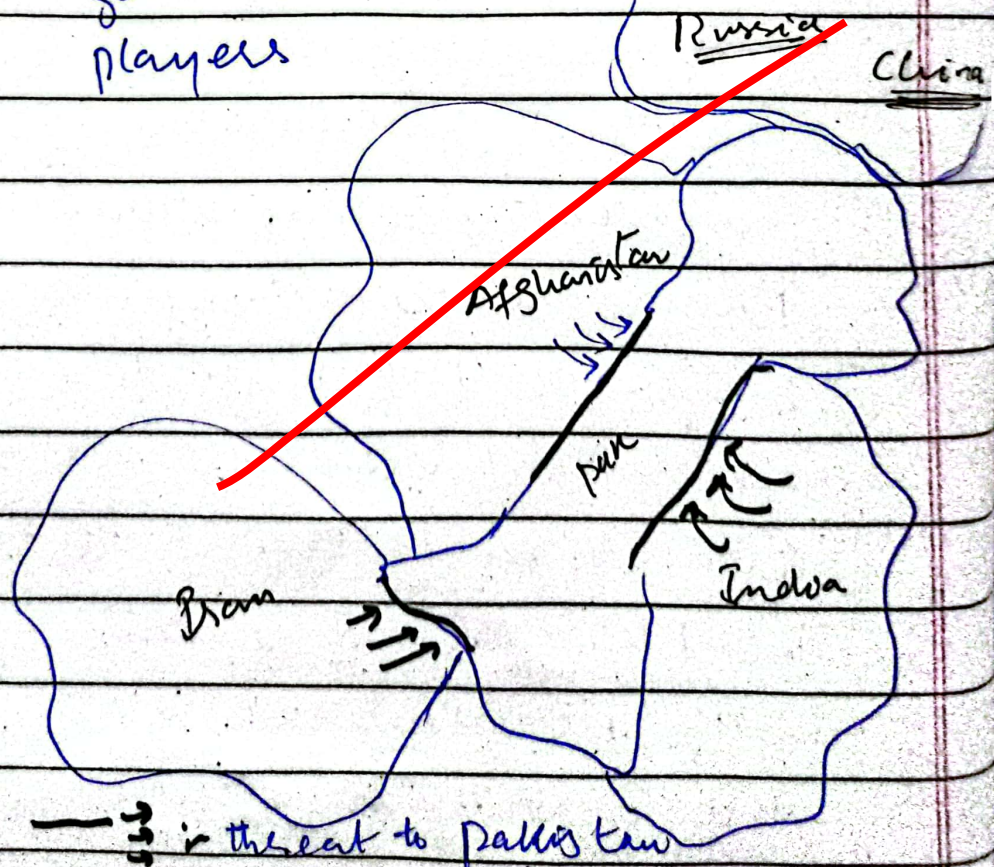 players
Russia
China
Afghanistan
pak
India
Iran
is threat to Pakistan